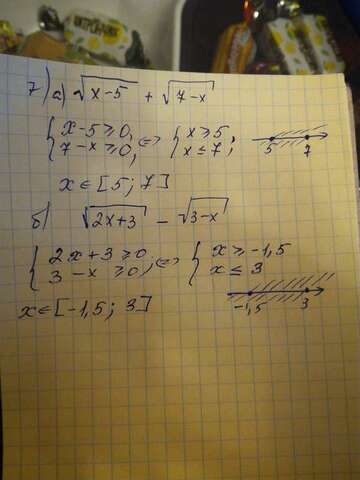 7) а) √(x-5) + √(7-x)
{ x-5≥0, 7-x≥0, <=> { x≥5 x≤7; 5 7
x∈[5; 7]
б) √(2x+3) - √(3-x)
{ 2x+3≥0 3-x≥0; <=> { x≥-1,5 x≤3
x∈[-1,5; 3] -1,5 3